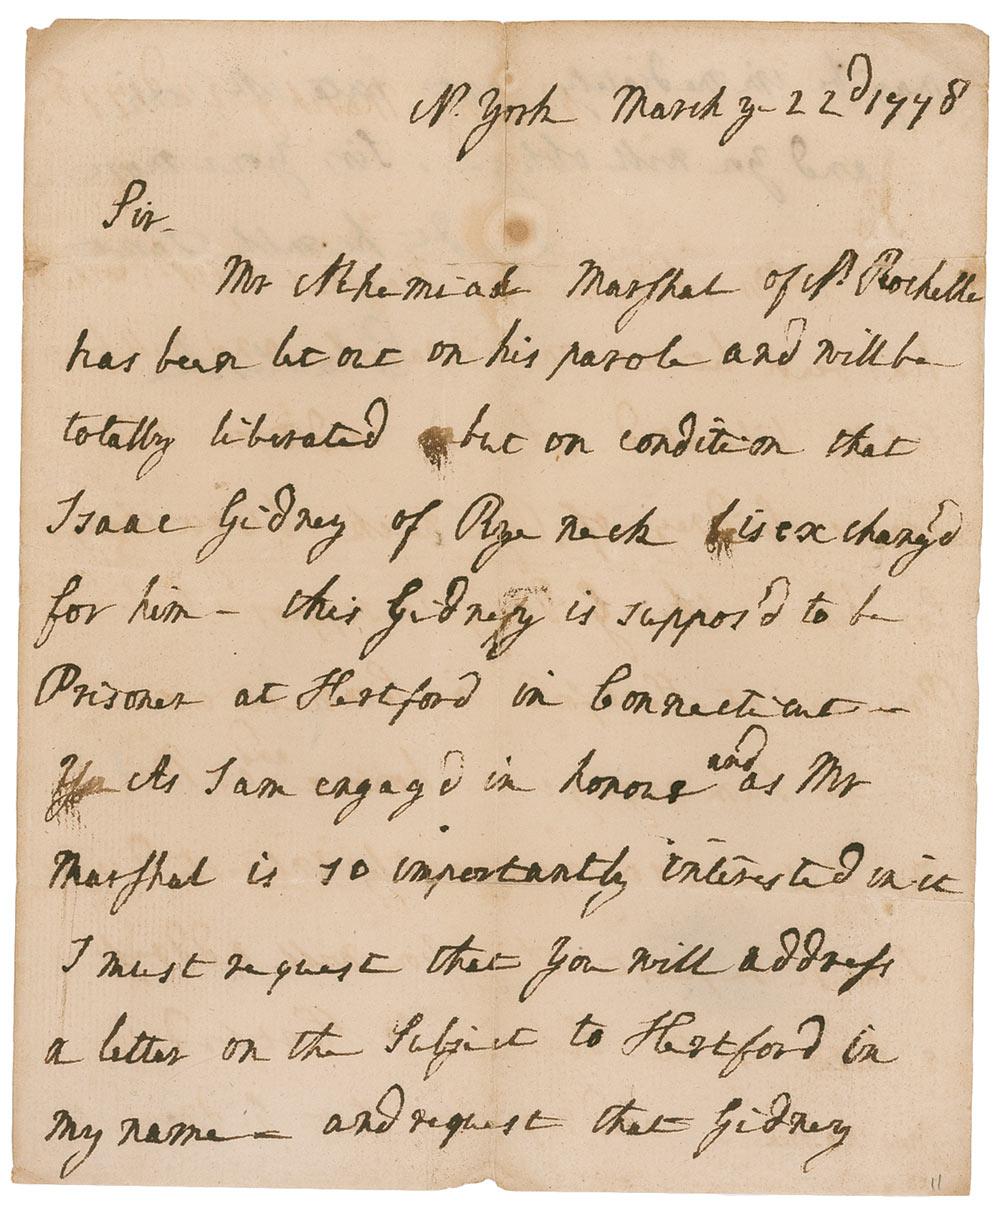 N. York March ye 22d 1778
Sir-
Mr Nehemiah Marshal of N. Rochelle
has been let out on his parole and will be
totally liberated but on condition that
Isaac Gidney of Rye neck is exchang'd
for him - this Gidney is suppos'd to be
Prisoner at Hertford in Connecticut -
As I am engag'd in honour and as Mr
Marshal is so importantly interested in it
I must request that you will address
a letter on the Subject to Hertford in
my name - and request that Gidney
11